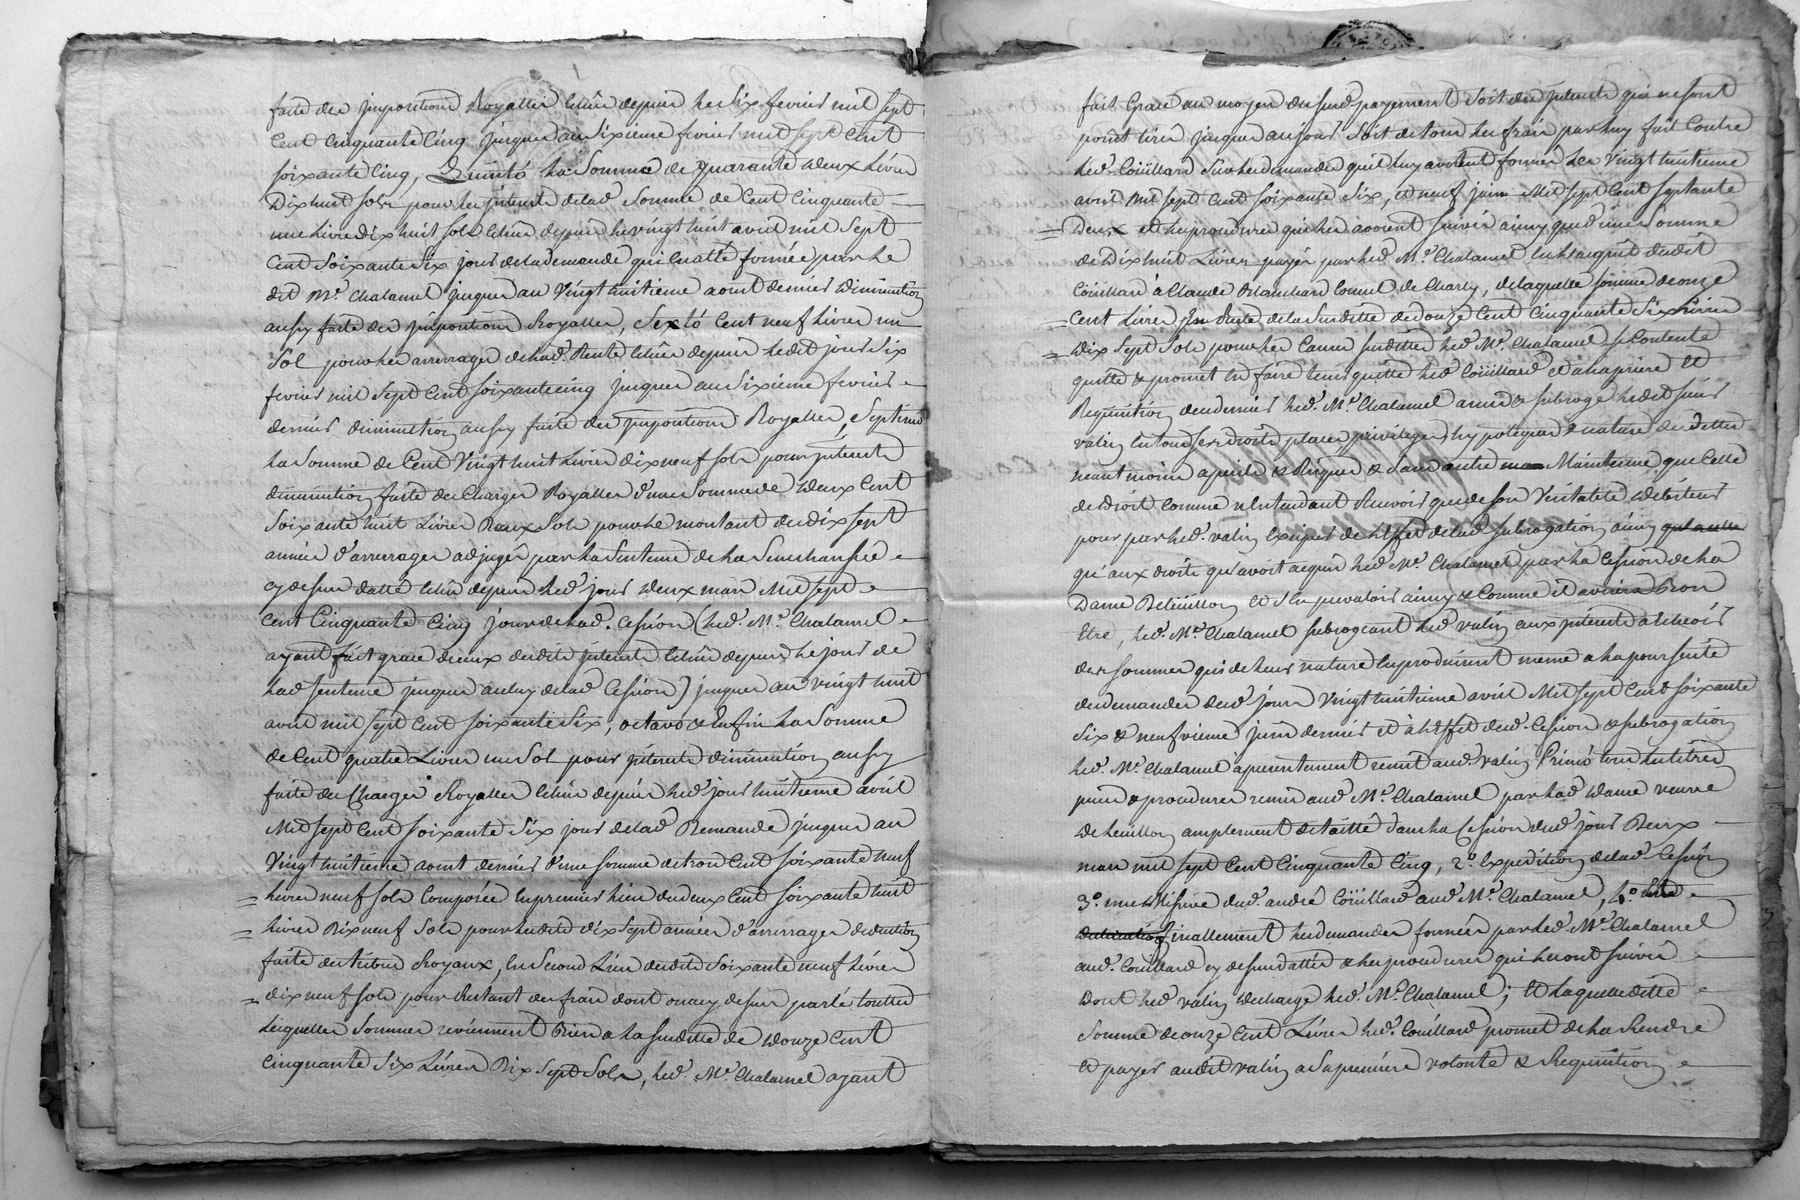 faite des impositions Royalles échûs depuis le six fevrier mil sept
cent cinquante cinq jusques au sixieme fevrier mil sept cent
soixante cinq, Quintó la somme de quarante deux livres
dix huit sols pour les interets delad. somme de cent cinquante
une livre dix huit sols échûs depuis le vingt huit avril mil sept
cent soixante six jour de la demande qui en a été formée par le
dit Me. Chalamel jusques au vingt huitieme aout dernier diminution
aussy faite des impositions Royalles, Sextó cent neuf livres un
sol pour les arrerages de lad. Rente échûs depuis ledit jour six
fevrier mil sept cent soixante cinq jusques au sixieme fevrier
dernier diminution aussy faite des impositions Royalles, Septimó
la somme de cent vingt huit livres dix neuf sols pour interets
diminution faite des charges Royalles d'une somme de deux cent
soixante huit livres deux sols pour le montant des dix sept
années d'arrerages adjugés par la sentence de la Senechaussée
cy dessus datté échûs depuis led. jour deux mars mil sept
cent cinquante cinq jour de lad. cession (led. Me. Chalamel
ayant fait grace d'iceux desdits interets échûs depuis le jour de
lad. sentence jusques a celuy de lad. cession) jusques au vingt huit
avril mil sept cent soixante six, octavo & enfin la somme
de cent quatre livres un sol pour interets diminution aussy
faite des charges Royalles échûs depuis led. jour huitieme avril
mil sept cent soixante six jour de lad. demande jusques au
vingt huitieme aout dernier d'une somme de trois cent soixante neuf
livres neuf sols composée en premier lieu des deux cent soixante huit
livres dix neuf sols pour lesdits dix sept années d'arrerages deduction
faite des tributs Royaux, en second lieu desdits soixante neuf livres
dix neuf sols pour Restant des frais dont on a cy dessus parlé touttes
lesquelles sommes reviennent bien a la susditte de douze cent
cinquante six livres dix sept sols, led. Me. Chalamel ayant
fait grace au moyen du susd. payement soit des interets qui ne sont
point tirés jusques au jour soit de tous les frais par luy fait contre
led. Coüillard sur les demandes qu'il luy avoient formés les vingt huitieme
avril mil sept cent soixante six, et neuf juin mil sept cent septante
deux et les procedures qui les avoient suivis ainsy que d'une somme
de dix huit livres payés par led. Me. Chalamel en l'acquit dudit
Coüillard à Claude Blanchard Consul de Charly, de laquelle somme de onze
cent livres en Reste de la susditte de douze cent cinquante six livres
dix sept sols pour les causes susdittes led. Me. Chalamel se contente
quitte & promet en faire tenir quitte led. Coüillard et a la priere et
Requisition de ce dernier led. Me. Chalamel a mis & subrogé ledit sieur
valin en tous ses droits places privileges hypoteques & nature de dettes
neantmoins a perils & Risques & sans autre Maintenue que celle
de droit comme n'entendant Recevoir que de son veritable debiteur
pour par led. valin exiper de l'effet de lad. subrogation ainsy
qu'aux droits qu'avoit acquis led. Me. Chalamel par la cession de la
Dame Deleüillon et s'en prevaloir ainsy & comme il avisera bon
etre, led. Me. Chalamel subrogeant led. valin aux interets a echeoir
des sommes qui de leur nature en produisent meme a la poursuite
des demandes desd. jours vingt huitieme avril mil sept cent soixante
six & neufvieme juin dernier et à l'effet desd. cession & subrogation
led. Me. Chalamel a presentement remit aud. valin Primó tous les titres
pieces & procedures remis aud. Me. Chalamel par lad. dame veuve
Deleuillon amplement detaillé dans la cession dud. jour deux
mars mil sept cent cinquante cinq, 2o. Expedition de lad. cession
3o. une Missive dud. andré Coüillard aud. Me. Chalamel, 4o.
finallement les demandes formées par led. Me. Chalamel
aud. Coüillard cy dessus dattés & les procedures qui les ont suivis
dont led. valin decharge led. Me. Chalamel; et laquelle ditte
somme de onze cent livres led. Coüillard promet de la Rendre
et payer audit valin a sa premiere volonté & Requisition